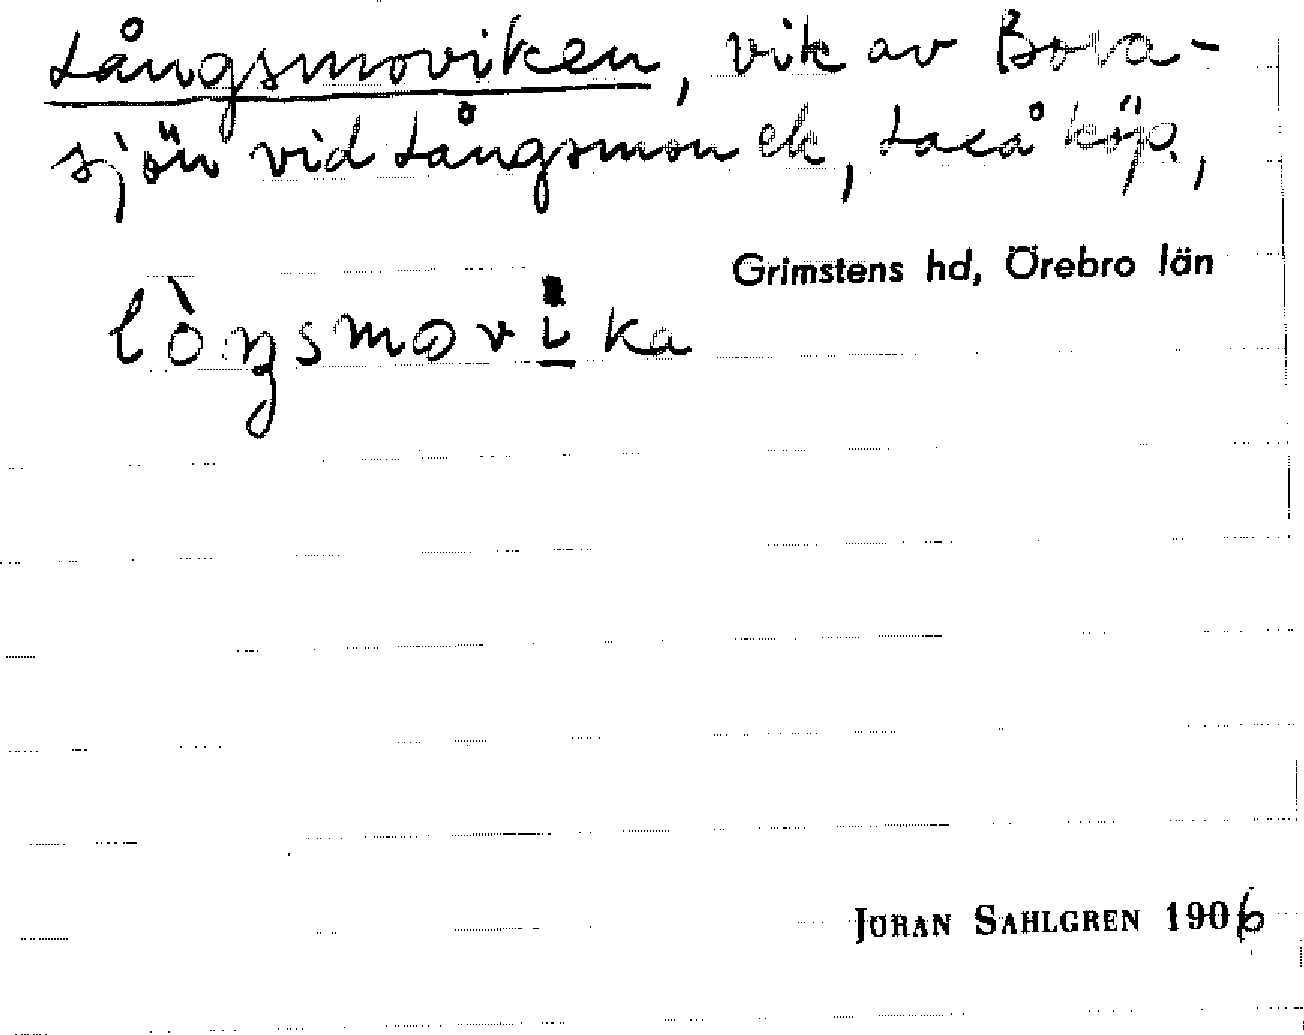 Långsmoviken, vik av Bora-
sjön vid Långsmon ek, Laxå köp.,
Grimstens hd, Örebro län
lòŋsmovika
JÖRAN SAHLGREN 1906